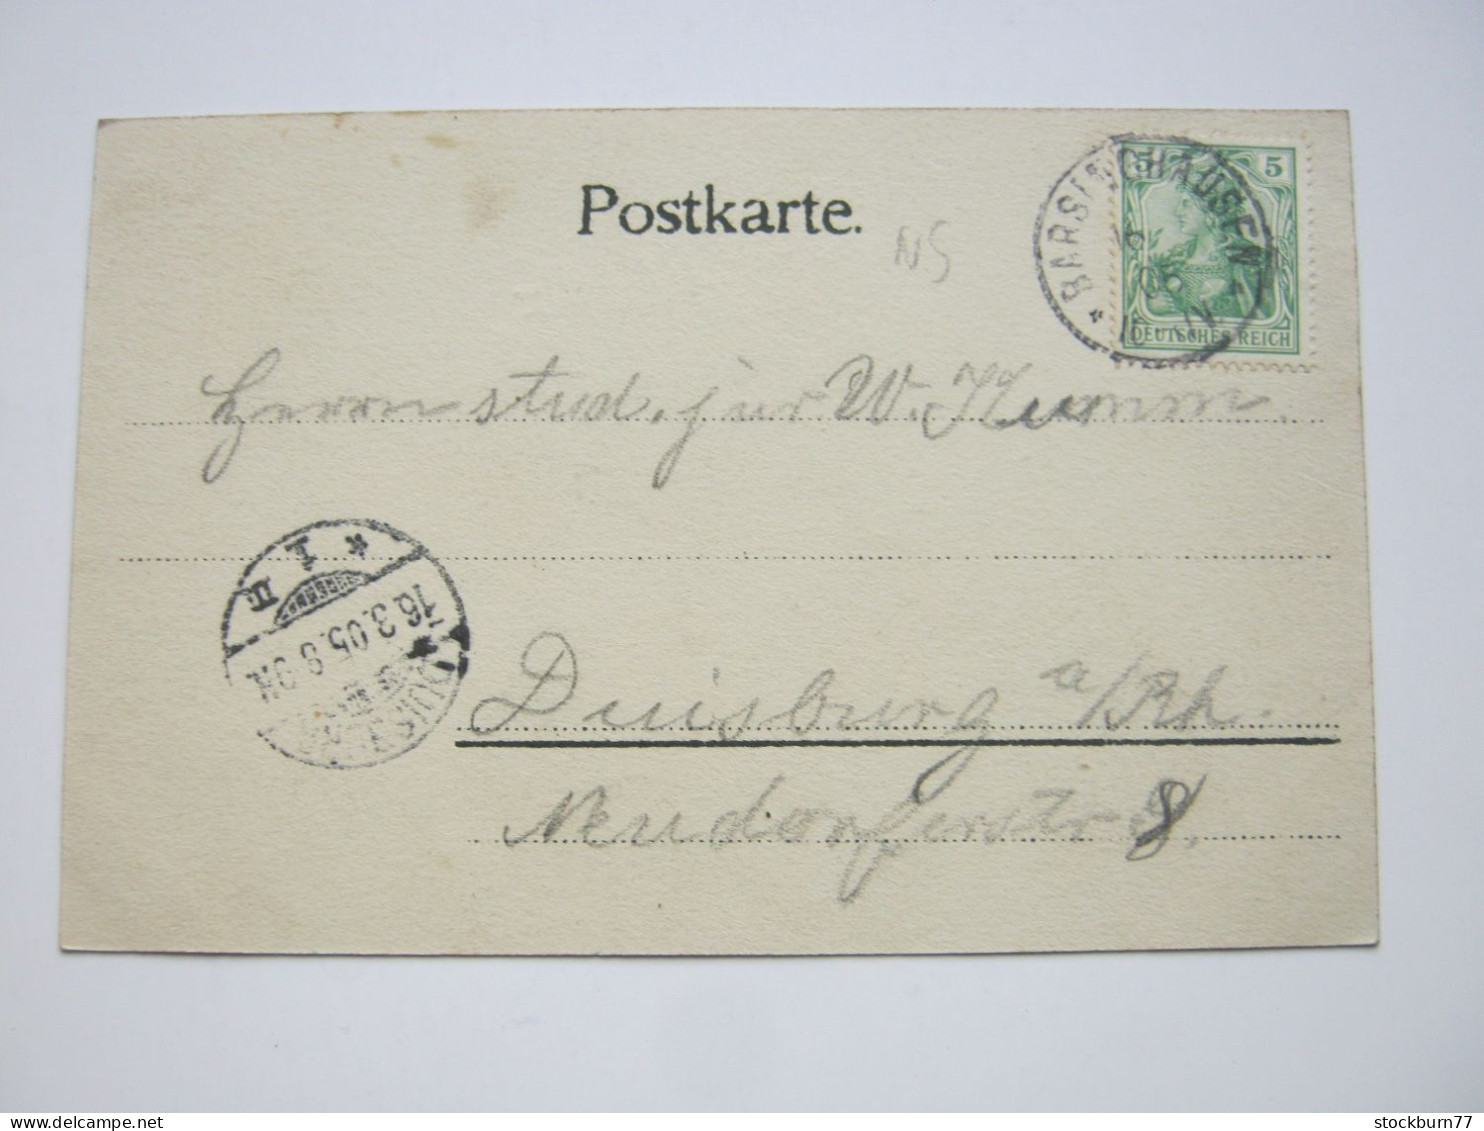 Postkarte.
NS
BARSINGHAUSEN
5 5
DEUTSCHES REICH
Herrn stud. jur W. Humm.
* 1 III
16.3.05.8-9N.
DUISBURG
Duisburg a/Rh.
Neudorferstr 8.
stockburn77